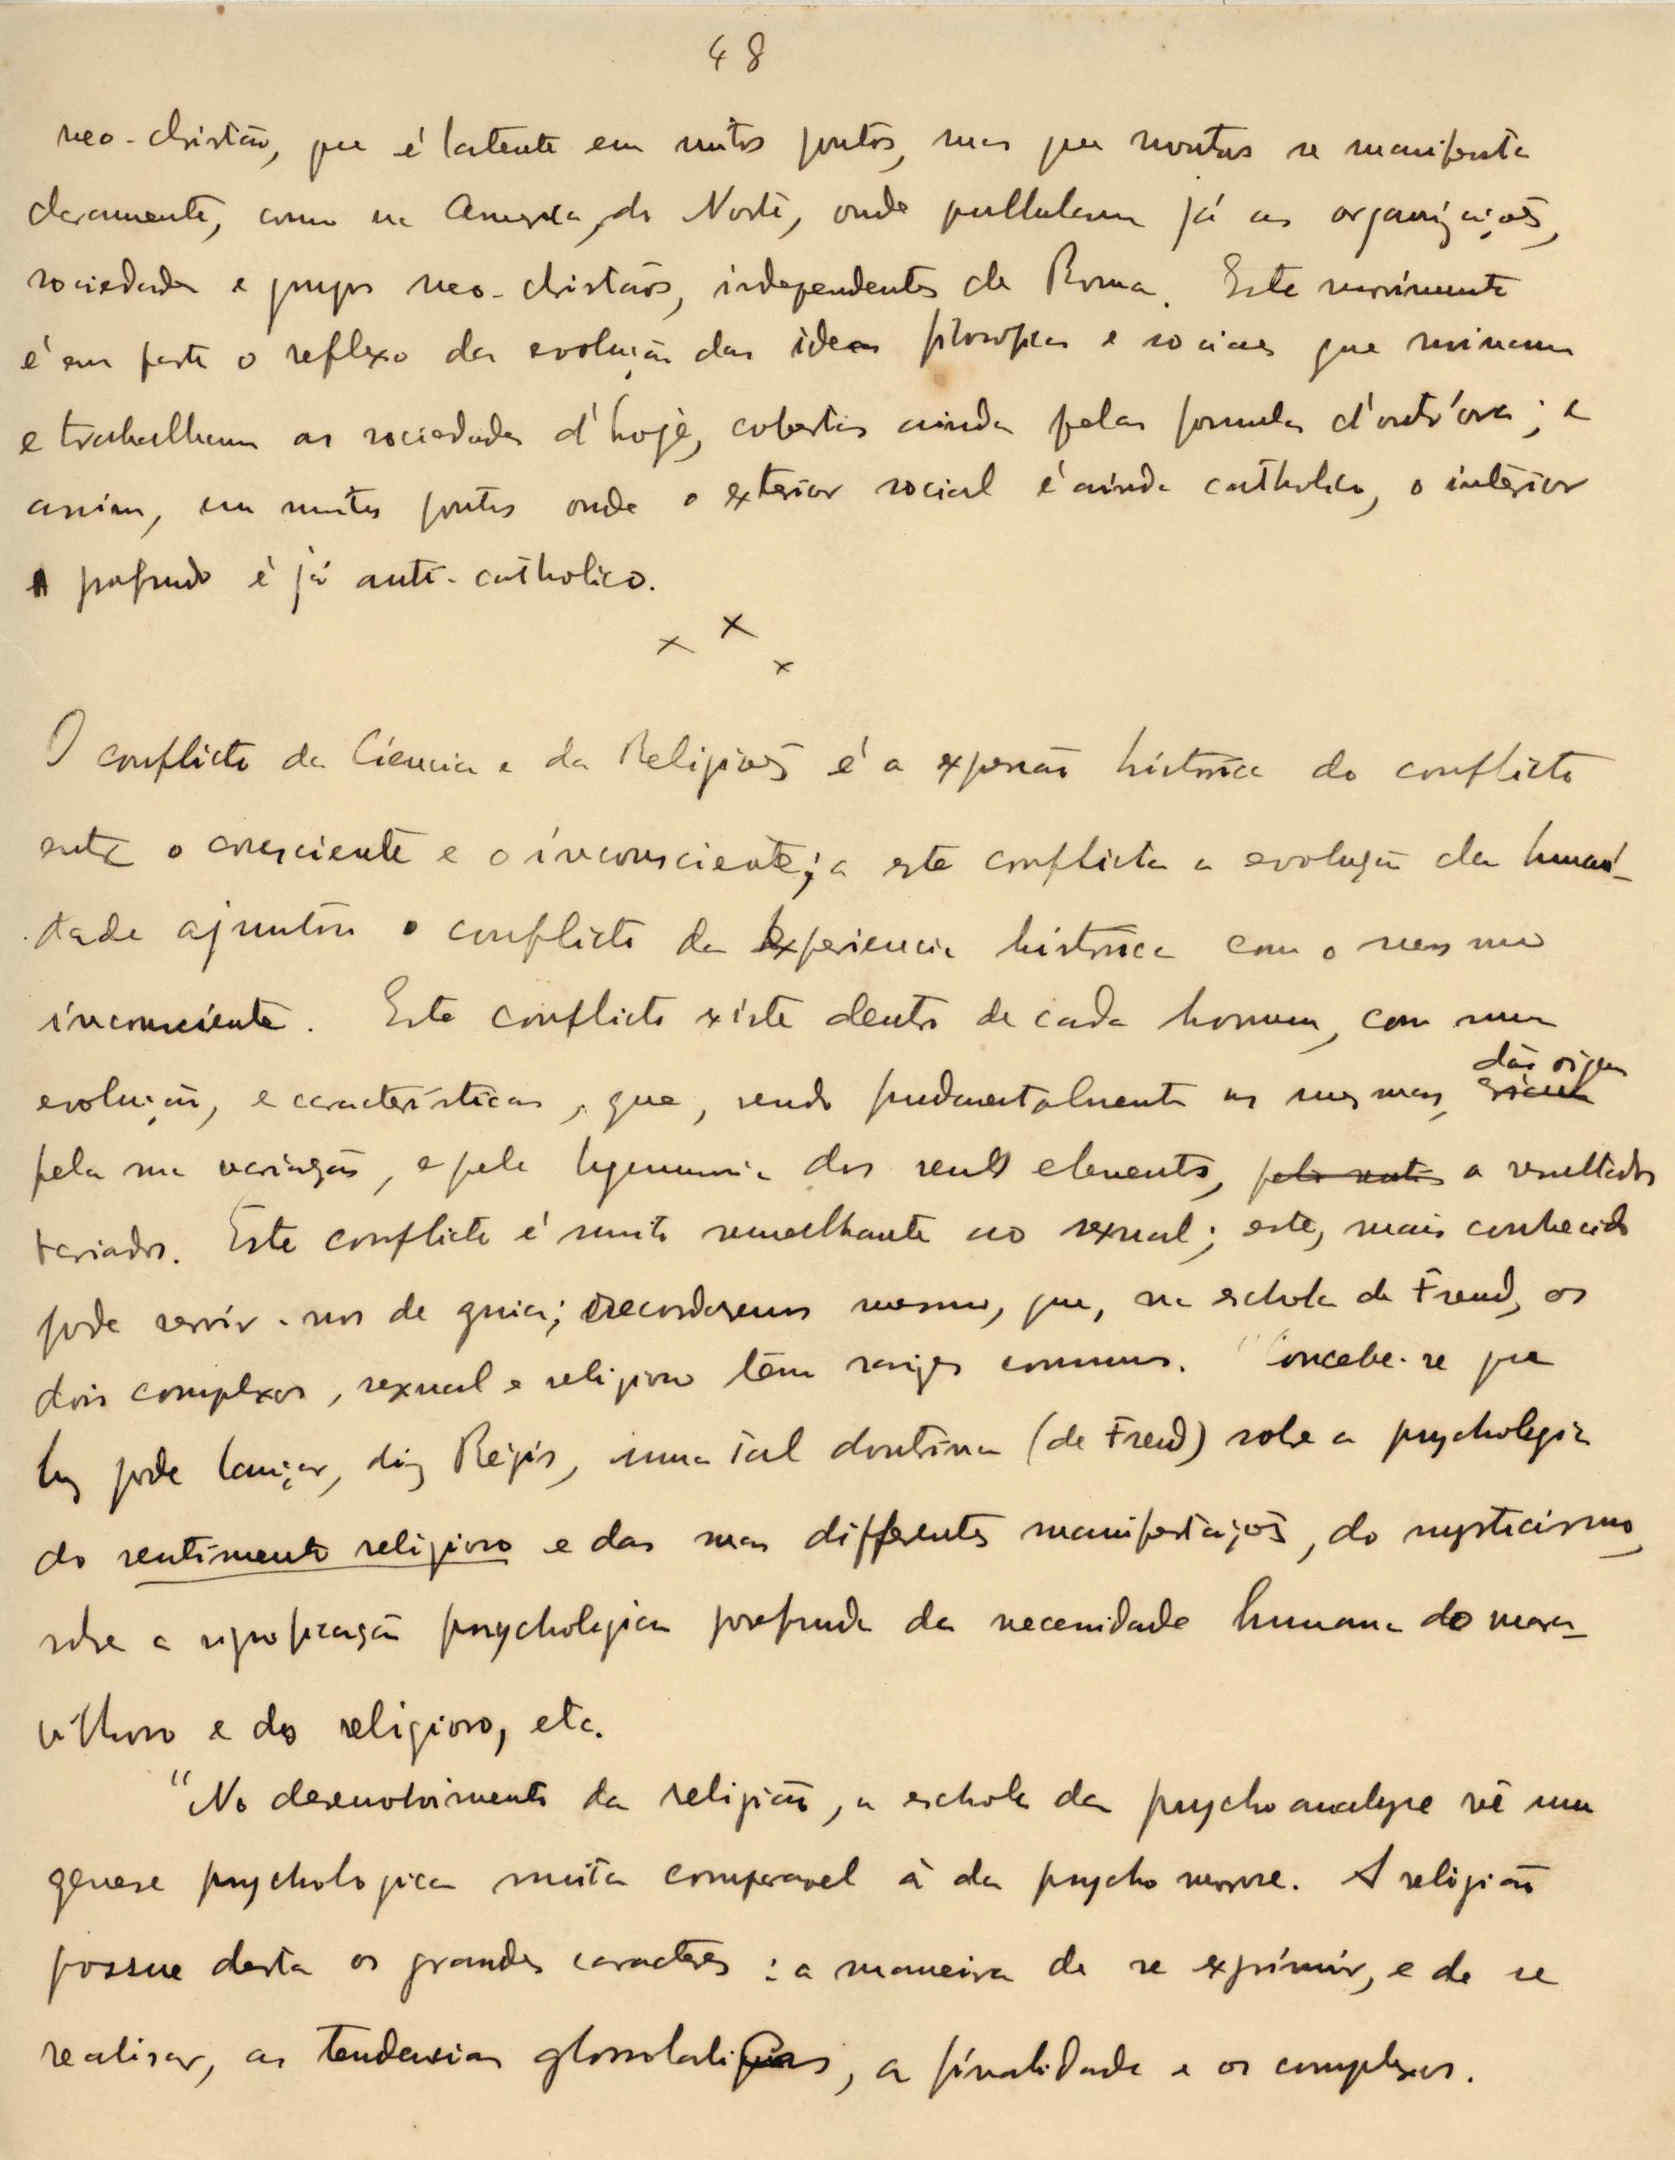 48
neo-christão, que é latente em muitos pontos, mas que noutros se manifesta
claramente, como na America do Norte, onde pullulam já as organizações,
sociedades e grupos neo-christãos, independentes de Roma. Este movimento
é em parte o reflexo da evolução das ideas filosoficas e sociaes que minam
e trabalham as sociedades d'hoje, cobertas ainda pelas formulas d'outr'ora; e
assim, em muitos pontos onde o exterior social é ainda catholico, o interior
profundo é já anti-catholico.
x x x
O conflicto da Ciencia e da Religião é a expressão historica do conflicto
entre o consciente e o inconsciente; a este conflicto a evolução da humani-
dade ajuntou o conflicto da experiencia historica com o mesmo
inconsciente. Este conflicto existe dentro de cada homem, com uma
evolução, e caracteristicas, que, sendo fundamentalmente as mesmas, dão origem
pela sua variação, e pela hegemonia dos seus elementos, a resultados
variados. Este conflicto é muito semelhante ao sexual; este, mais conhecido
pode servir-nos de guia; recordaremos mesmo, que, na eschola de Freud, os
dois complexos, sexual e religioso têm raizes communs. "Concebe-se que
luz pode lançar, diz Régis, uma tal doutrina (de Freud) sobre a psychologia
do sentimento religioso e das suas differentes manifestações, do mysticismo,
sobre a significação psychologica profunda da necessidade humana do mara-
vilhoso e do religioso, etc.
"No desenvolvimento da religião, a eschola da psychoanalyse vê uma
genese psychologica muito comparavel à da psychonevrose. A religião
possue desta os grandes caracteres: a maneira de se exprimir, e de se
realisar, as tendencias, a finalidade e os complexos.